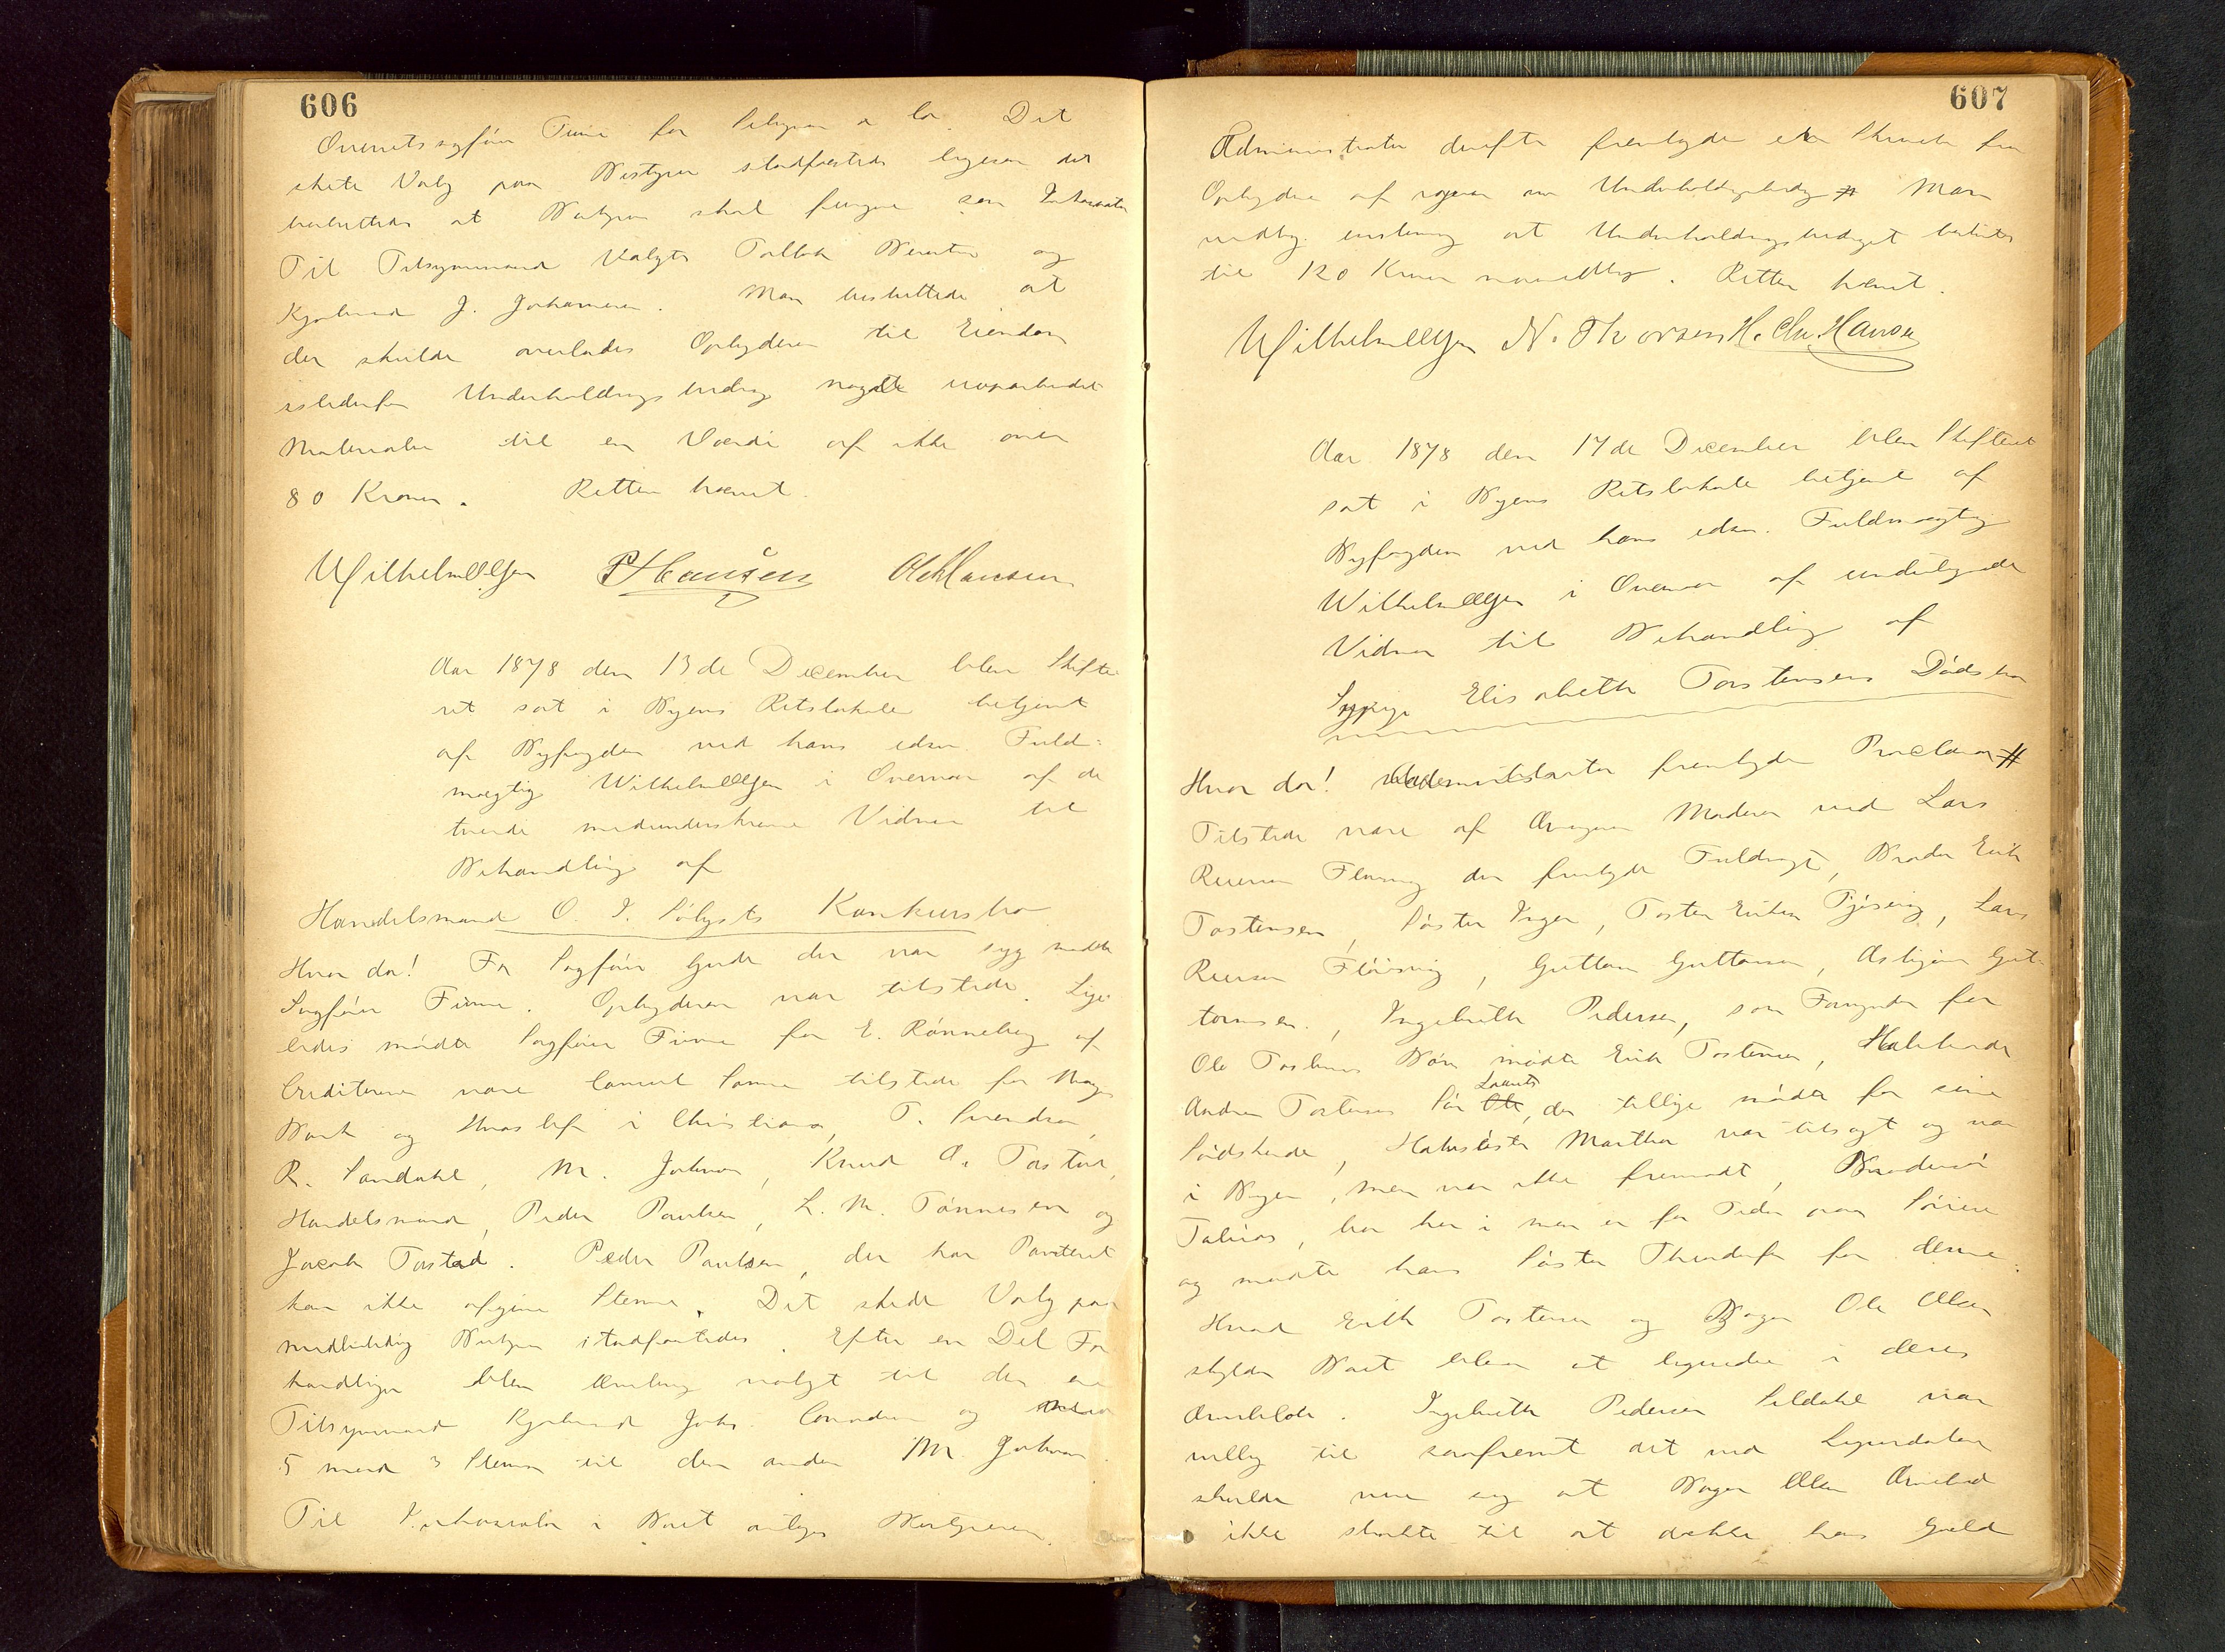 606
Overretssagfører Finne for Seligman & Co. Det
skete Valg paa Bestyrer stadfæstedes ligesom det
besluttedes at Bestyrer skal fungere som Inkassator
Til Tilsynsmand Valgtes Tollak Berentsen og
Kjøbmand J. Johannesen. Man besluttede at
der skulde overlades Opbyderen til Eiendom
istedenfor Underholdningsbidrag nogle uoparbeidet
Materialier til en Værdi af ikke over
80 Kroner. Retten hævet.
Wilhelm Olsen P. Hansen Ole Hansen
Aar 1878 den 13de December blev Skifte
ret sat i Byens Retslokale betjent
af Byfogden ved hans edsv. Fuld=
mægtig Wilhelm Olsen i Overvær af de
tvende medunderskrevne Vidner til
Behandling af
Handelsmand O. J. Sølysts Konkursbo
Hvor da! For Sagfører Gjerde der var syg mødte
Sagfører Finne. Opbyderen var tilstede. Lige
ledes mødte Sagfører Finne for E. Rønneberg af
Creditorerne vare Consul Sømme tilstede for
og i Christiania, T. Svendsen,
R. Sandahl, M. Johnsen, Knud A. Tastad,
Handelsmand, Peder Paulsen, L. M. Tønnesen og
Jacob Tastad. Peder Paulsen, der har Panteret
kan ikke afgive Stemme. Det skedte Valg paa
midlertidig Bestyrer stadfæstedes. Efter en Del For
handlinger blev Enstemmig valgt til den ene
Tilsynsmand Kjøbmand Johs. og
5 mod 3 Stemmer til den anden M. Johnsen.
Til Inkassator i Boet antoges Bestyreren
607
Administrator derefter fremlagde en Skrivelse fra
Opbyderen af igaar om Underholdningsbidrag # Man
vedtog enstemmig at Underholdningsbidraget berettes
til 120 Kroner maanedlig. Retten hævet.
Wilhelm Olsen N. Thorsen H. Chr. Hansen
Aar 1878 den 17de December blev Skifteret
sat i Byens Retslokale betjent af
Byfogden ved hans edsv. Fuldmægtig
Wilhelm Olsen i Overvær af undertegnede
Vidner til Behandling af
Sypige Elisabeth Torstensens Dødsbo
Hvor da! Administrator fremlagde Proclama #
Tilstede vare af Arvingerne Moderen ved Lars
Reiersen Fløisvig der fremlagde Fuldmagt, Broder Erik
Tostensen, Søster Inger, Tosten Eriksen Tjøsvig, Lars
Reiersen Fløisvig, Guttorm Guttormsen, Asbjørn Gut-
tormsen, Ingebreth Pedersen, som Formynder for
Ole Tostensens Børn mødte Erik Tostensen, Halvbroder
Andreas Tostensens Søn Laurits der tillige mødte for sine
Sødskende, Halvsøster Martha var tilsagt og var
i Byen, men var ikke fremmødt, Brodersøn
Tobias, bor her i men er for Tiden paa Søreise
og mødte hans Søster Thordine for denne.
Hvad Erik Tostensen og Bager Ole Olsen
skylder Boet bliver at liqvidere i deres
Arvelod. Ingebreth Pedersen Seldahl var
villig til saafremt det ved Liqvidation
skulde vise sig at Bager Olsens Arvelod
ikke strakte til at dække hans Gjæld